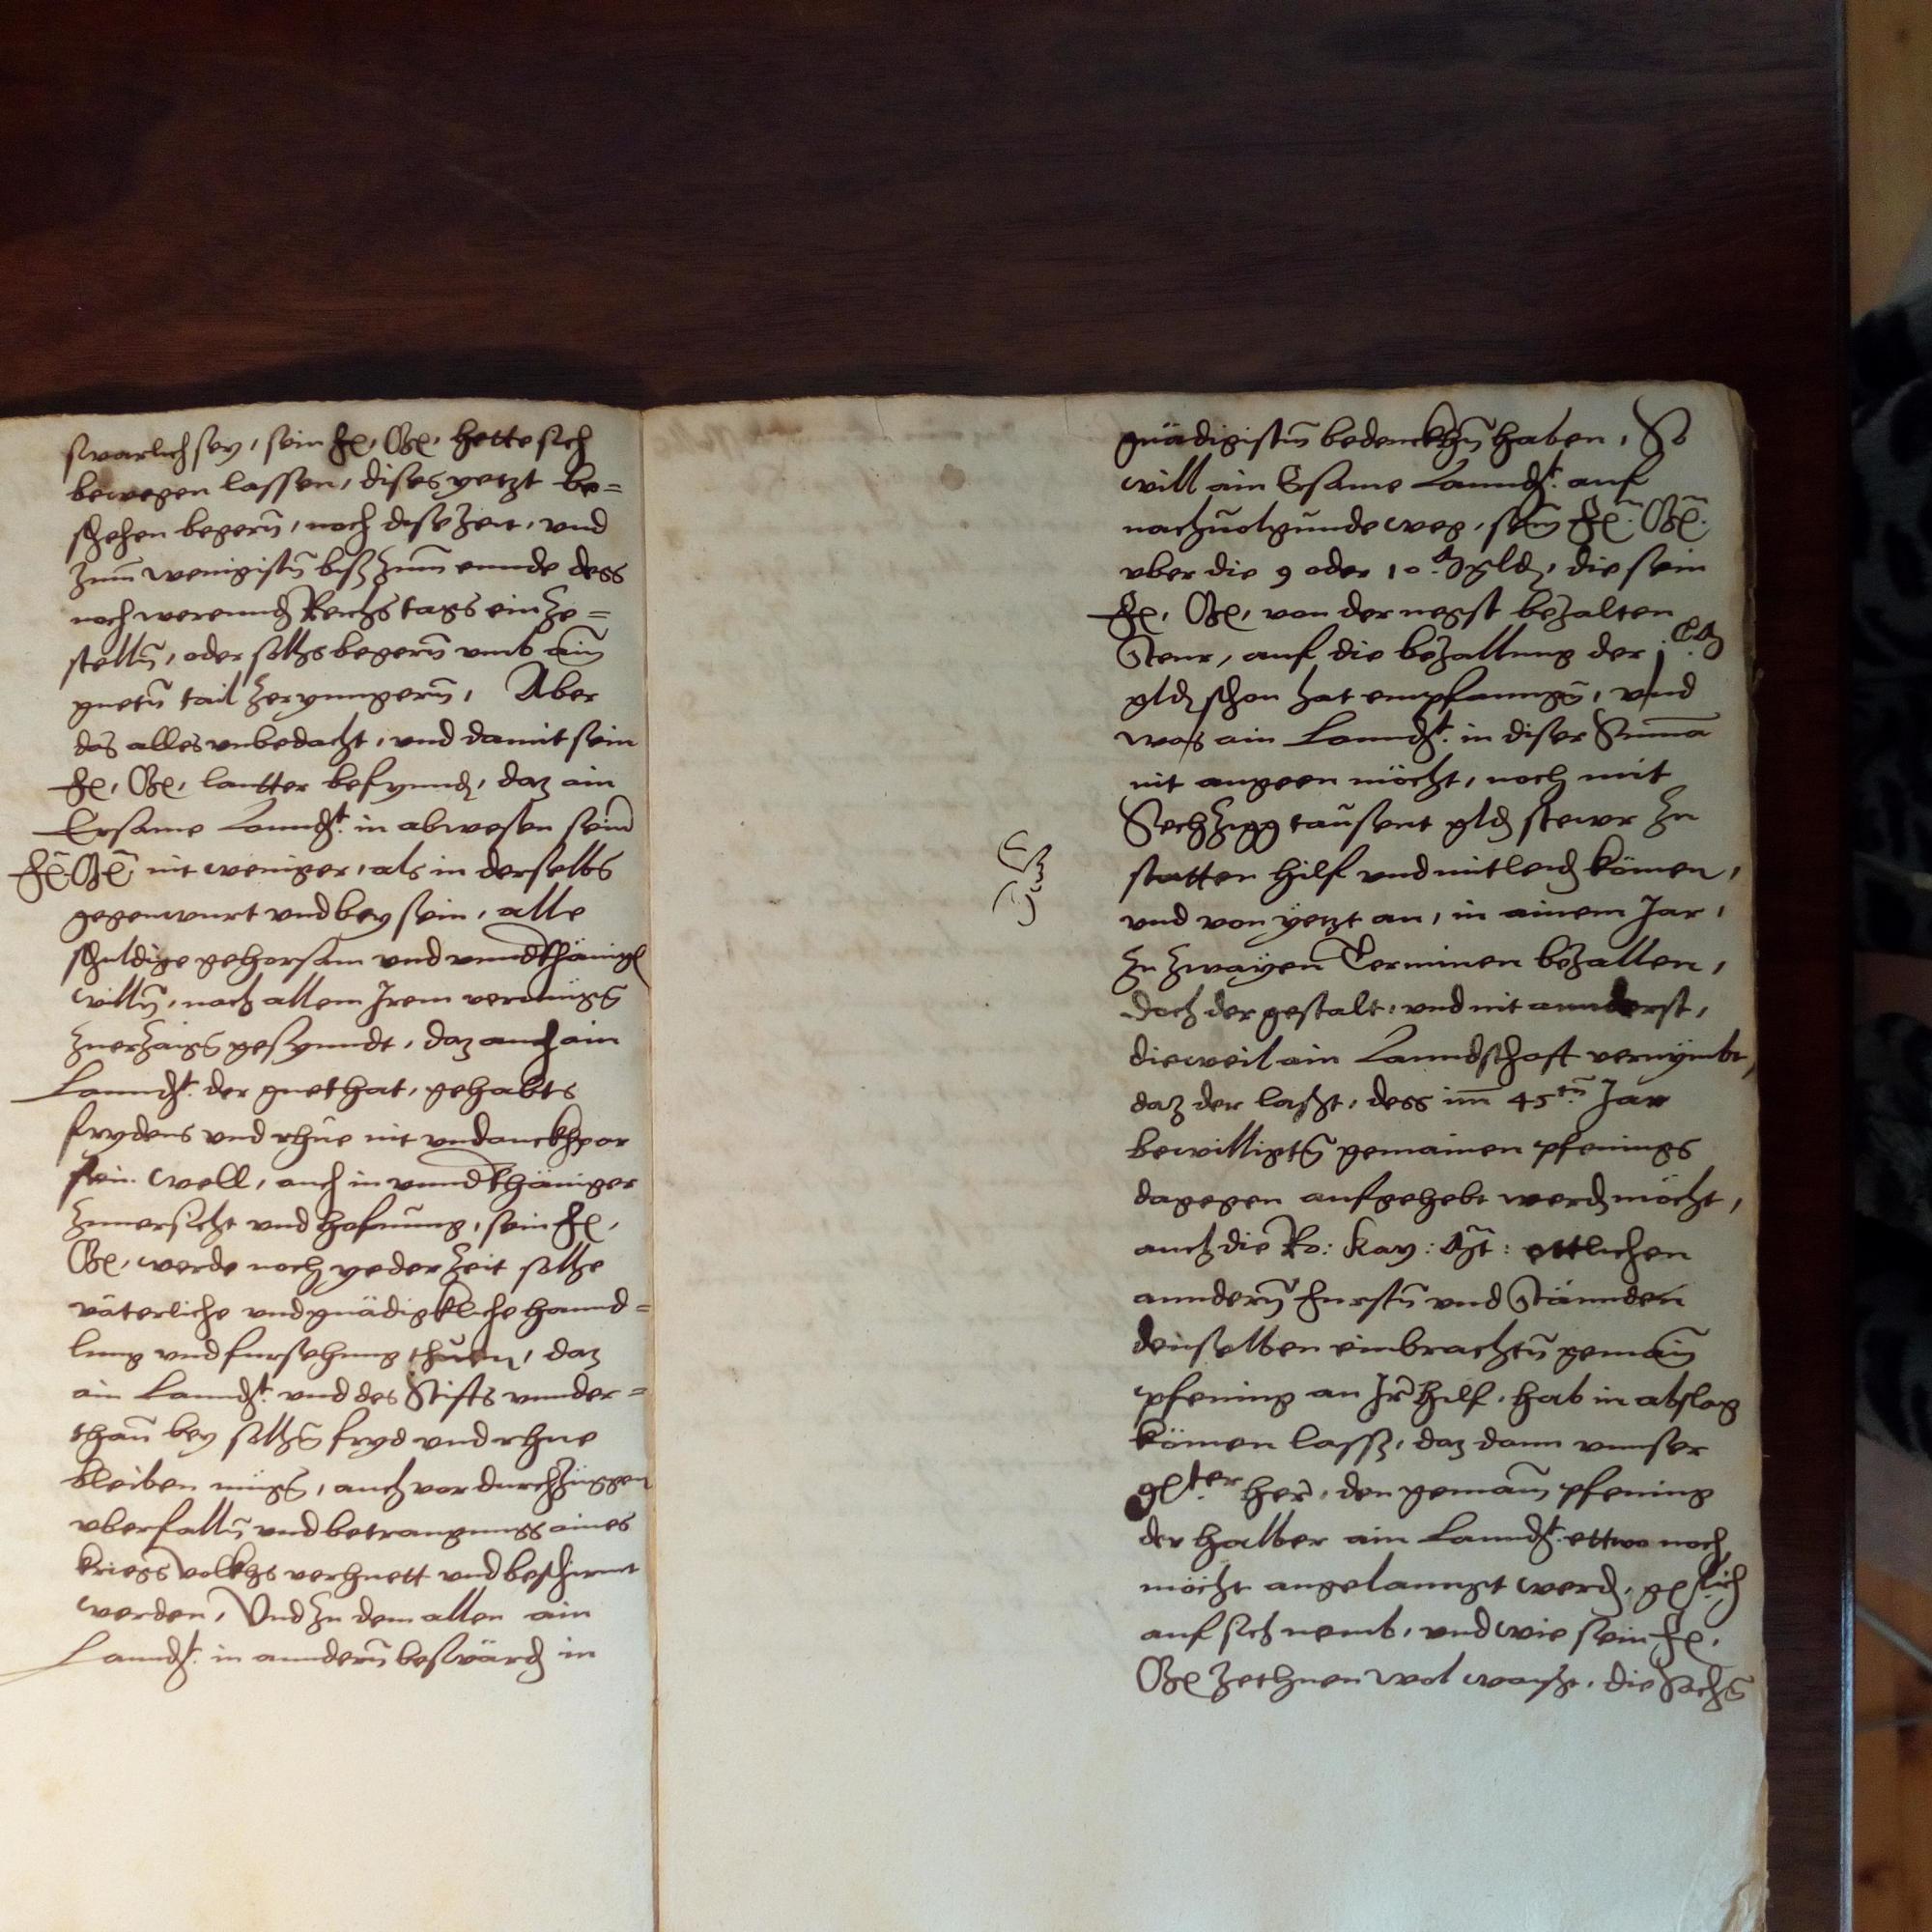 swarlich sey, sein fl. Gn. hette sich
bewegen lassen, dises yetzt be=
schehen begern, noch dise Zeit, vnd
zum wenigistn biß zum ennde dess
noch werennd Reichstags ein ze=
stelln, oder solhs begern vmb ain
guetn tail Zeryngern, Aber
das alles vnbedacht, vnd damit sein
fl. Gn. lautter befynnd, daz ain
Ersame Lanndscht. in abwesen seine
fl. Gn. nit weniger, als in derselbs
gegenwurt vnd bey sein, alle
schuldige gehorsam vnd vnndthänigs
willn, nach allem Irem vermügn
zuerzaign gesynndt, daz auch ain
Lanndscht. der guethat, gehabts
frydens vnd rhue nit vndanckhpar
sein well, auch in vnndthäniger
Zuuersicht vnd hofnung, sein fl.
Gn. werde noch yeder Zeit solhe
väterliche vnd gnädigkliche hannd=
lung vnd fursehung thuen, daz
ain Lanndscht. vnd des Stifts vnnder=
than bey solhn fryd vnd rhue
bleiben mügn, auch vor durchzüggen
vberfalln vnd betrangnuss aines
kriegs volkhs verhuett vnd beschirmt
werden, Vnd zu dem allen ain
Lanndscht. in anndern beswärd in
gnädigistn bedenckhn haben, So
will ain Ersame Lanndscht. auf
nachuolgunde weg, sein fl. Gn.
vber die 9 oder 10 M gld, die sein
fl. Gn. von der negst bezalten
Steur, auf die bezallung der j C M
gld schon hat empfanngn, vnd
was ain Lanndscht. in diser Suma
nit angeen möcht, noch mit
Sechzigg tausent gld stewr zu
statten hilf vnd mitleid kömen,
vnd von yetzt an, in ainem Jar,
zu zwayen Terminen bezallen,
doch der gestalt, vnd nit annderst,
dieweil ain Lanndschaft vernymbt,
daz der lasst, dess im 45tn Jar
bewilligtn gemainen pfenings
dagegen aufgehebt werd möcht,
auch die Ro: Kay: Mt: ettlichen
anndern furstn vnd Stännden
denselben einbrachtn gemain
pfening an Ir hilf, hab in abslag
kömen lassn, daz dann vnnser
gster her, den gemain pfening
der halber ain Lanndscht. ettwo noch
möcht angelanngt werd, gnslich
auf sich nemb, vnd wie sein fl.
Gn zethuen wol waysst, die Sachn